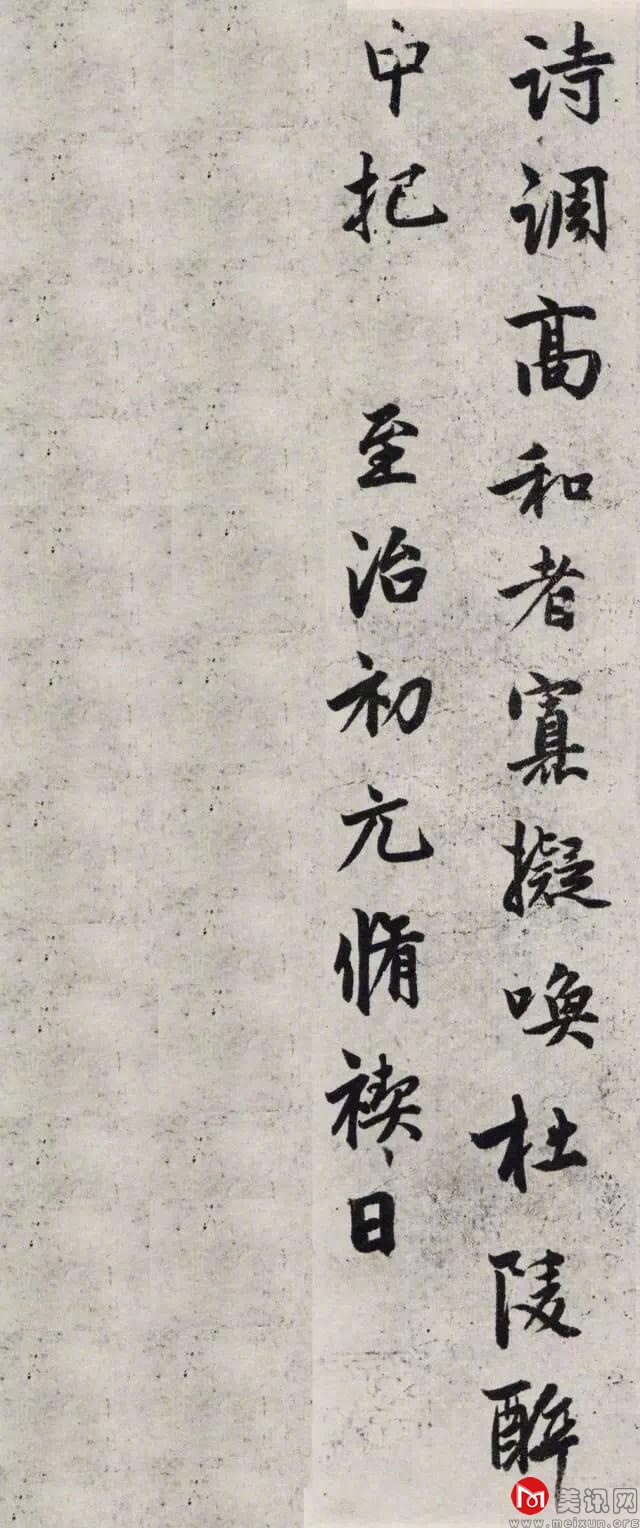 诗调高和者寡擬唤杜陵醉
中把 至治初元脩禊日
美讯网
www.meixun.org